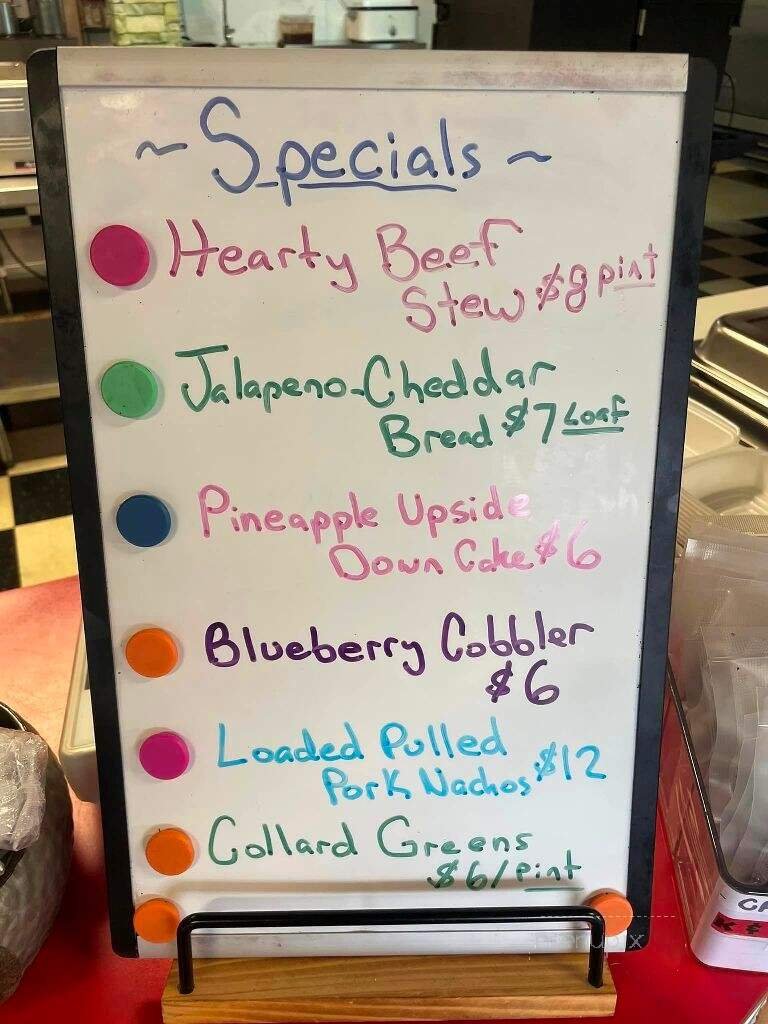 ~ Specials ~
Hearty Beef
Stew $8 pint
Jalapeno-Cheddar
Bread $7 Loaf
Pineapple Upside
Down Cake $6
Blueberry Cobbler
$6
Loaded Pulled
Pork Nachos $12
Collard Greens
$6/pint